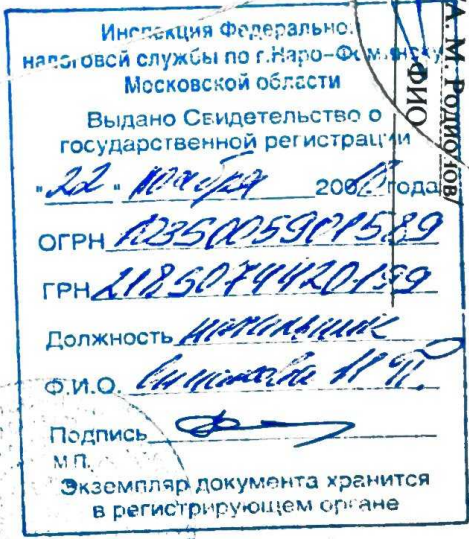 Инспекция Федеральной
налоговой службы по г.Наро-Фоминску
Московской области
Выдано Свидетельство о
государственной регистрации
"22" ноября 200 года
ОГРН 1035005901589
ГРН 2185074420199
Должность начальник
Ф.И.О. И П.
Подпись
М.П.
Экземпляр документа хранится
в регистрирующем органе
А. М. Родионов/
ФИО